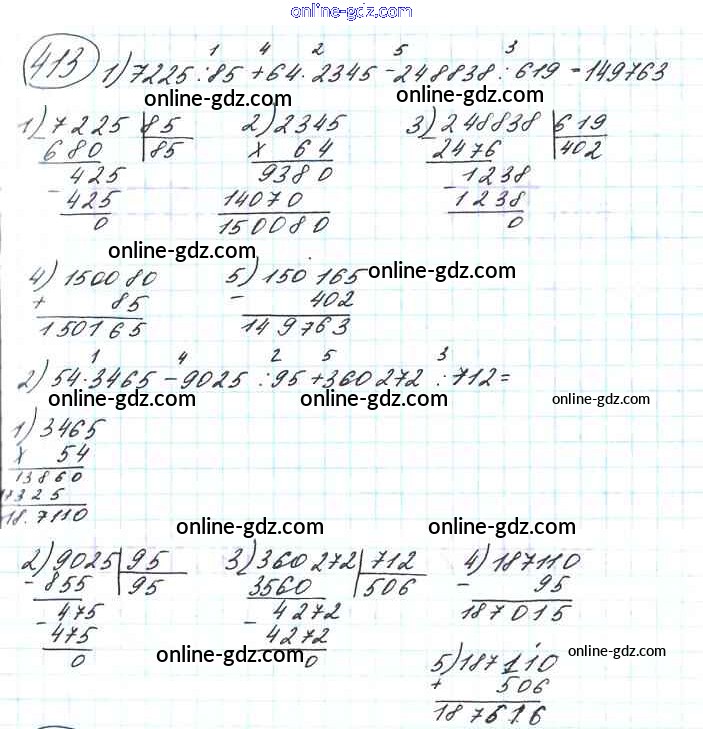 online-gdz.com
413 1) 7225 : 85 + 64 · 2345 - 248838 : 619 = 149763
1 4 2 5 3
online-gdz.com online-gdz.com
1) 7225 85 2) 2345 3) 248838 619
- 680 85 x 64 - 2476 402
425 9380 1238
- 425 14070 - 1238
0 150080 0
online-gdz.com
4) 150080 5) 150165 online-gdz.com
+ 85 - 402
150165 149763
1 4 2 5 3
2) 54 · 3465 - 9025 : 95 + 360272 : 712 =
online-gdz.com online-gdz.com online-gdz.com
1) 3465
x 54
13860
17325
18.7110
online-gdz.com online-gdz.com
2) 9025 95 3) 360272 712 4) 187110
- 855 95 3560 506 - 95
475 4272 187015
- 475 - 4272
0 0
online-gdz.com online-gdz.com
5) 187110
+ 506
187616